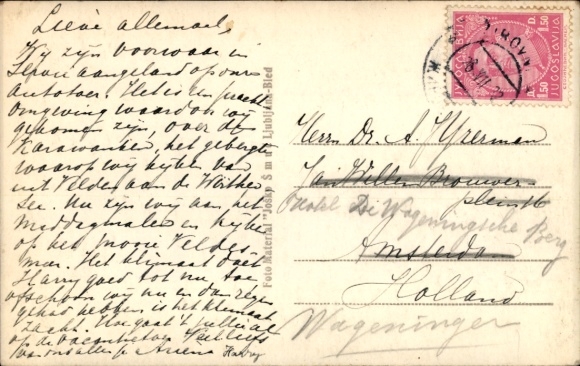 Lieve allemaal,
Wij zijn voorwaar in
Servië aangeland op onze
Autotoer. Het is een pracht
omgeving waardoor wij
gekomen zijn, over de
Karawanken, het gebergte
waarop wij kijken van
uit Velden aan de Wörther
See. Nu zijn wij aan het
middagmalen en kijken
op het mooie Veldes
meer. Het klimaat doet
Harry goed tot nu toe
ofschoon wij nu en dan regen
gehad hebben is het klimaat
zacht. Hoe gaat 't jullie al
op de vacantietoer Veel liefs
van ons allen je Harry
Foto Material "Joško Šmuc" Ljubljana-Bled
ЈУГОСЛАВИЈА
JUGOSLAVIJA
1.50
D.
1.50
Herrn Dr. A. IJzerman
Jan Willem Brouwers-
plein
Hotel De Wageningsche Berg
Amsterdam
Holland
Wageningen